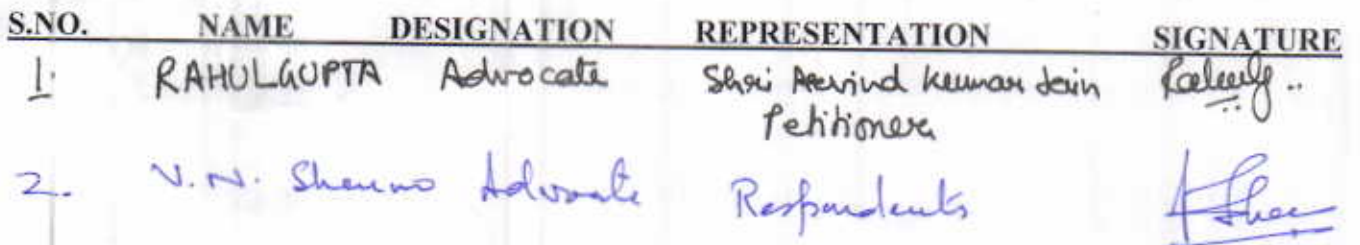 S.NO. NAME DESIGNATION REPRESENTATION SIGNATURE
1. RAHUL GUPTA Advocate Shri Arvind Kumar Jain
Petitioner
2. V.N. Sharma Advocate Respondents